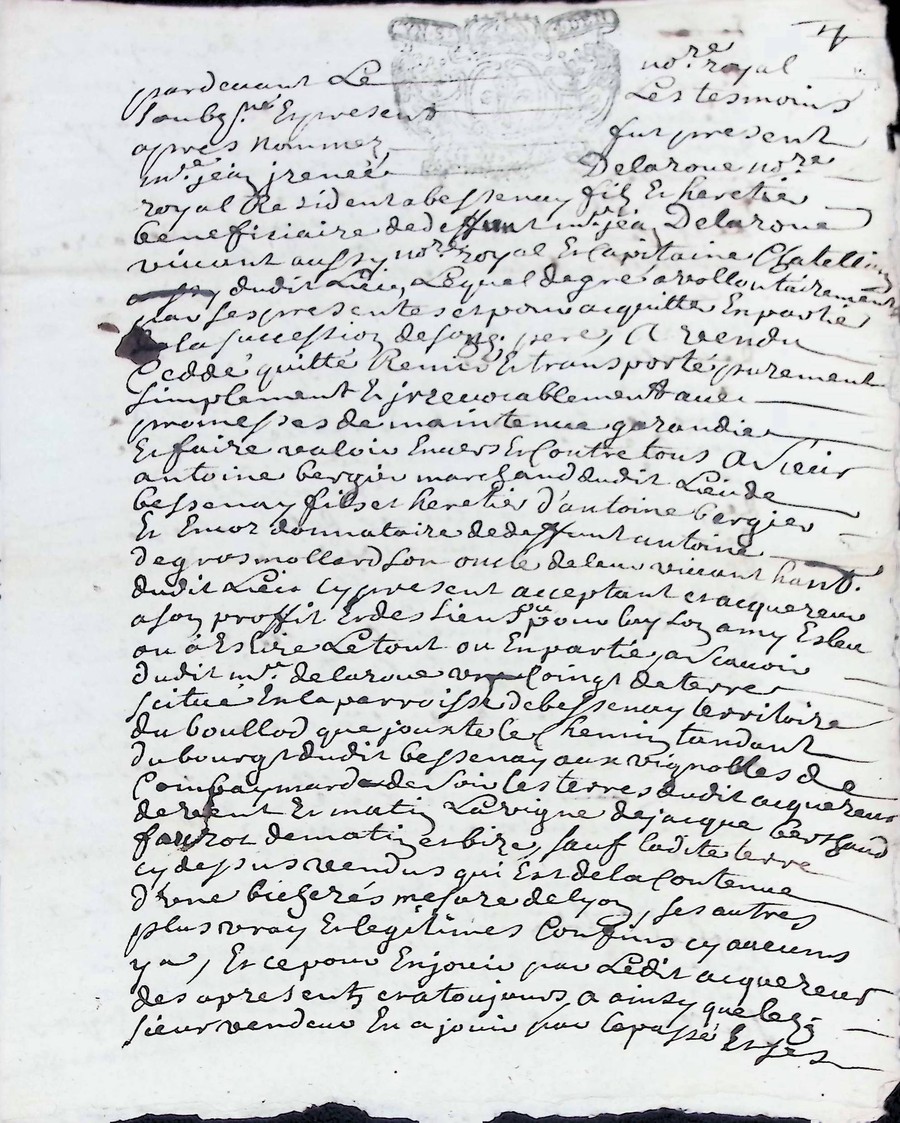 pardevant Le no.re royal
soubz.né Et present Les tesmoins
apres nommez fut present
m.re jean jreneé Delaroue no.re
royal Resident a bessenay fils Et heretier
beneficiaire de deffunt m.re jean Delaroue
vivant aussy no.re royal Et Capitaine Chatellain
dudit Lieu, Lequel de gré a vollontairement
par ses presentes et pour acquitte En partie
la succession de son pere, A vendu
Ceddé quitté Remis Et transporté purement
simplement Et jrrevocablement avec
promesses de maintenue garandie
Et faire valoir Envers Et Contre tous A sieur
antoine bergier marchand dudit Lieu de
bessenay fils et heretier d'antoine bergier
Et donnataire de deffunt antoine
degrosmollard son oncle de leur vivant
dudit Lieu cy present acceptant et acquereur
a son proffit Et des siens pour luy son amy Esleu
ou à Eslire Le tout ou En partie, a scavoir
dudit m.re delaroue un Coingt de terre
scitué En la parroisse de bessenay territoire
du boullod que jouxte le Chemin tandant
du bourgt dudit bessenay aux vignobles de
de soir les terres dudit acquereur
de vent Et matin La vigne de jacque berthaud
de matin et bize, sauf ladite terre
cy dessus vendus qui Est de la Contenue
d'une bicherés mesure de lyon, ses autres
plus vray Et legitimes Confins cy aucuns
y a, Et ce pour En jouir par Ledit acquereur
des apresent et a toujours a ainsy que le
sieur vendeur En a jouir par le passé Et ses